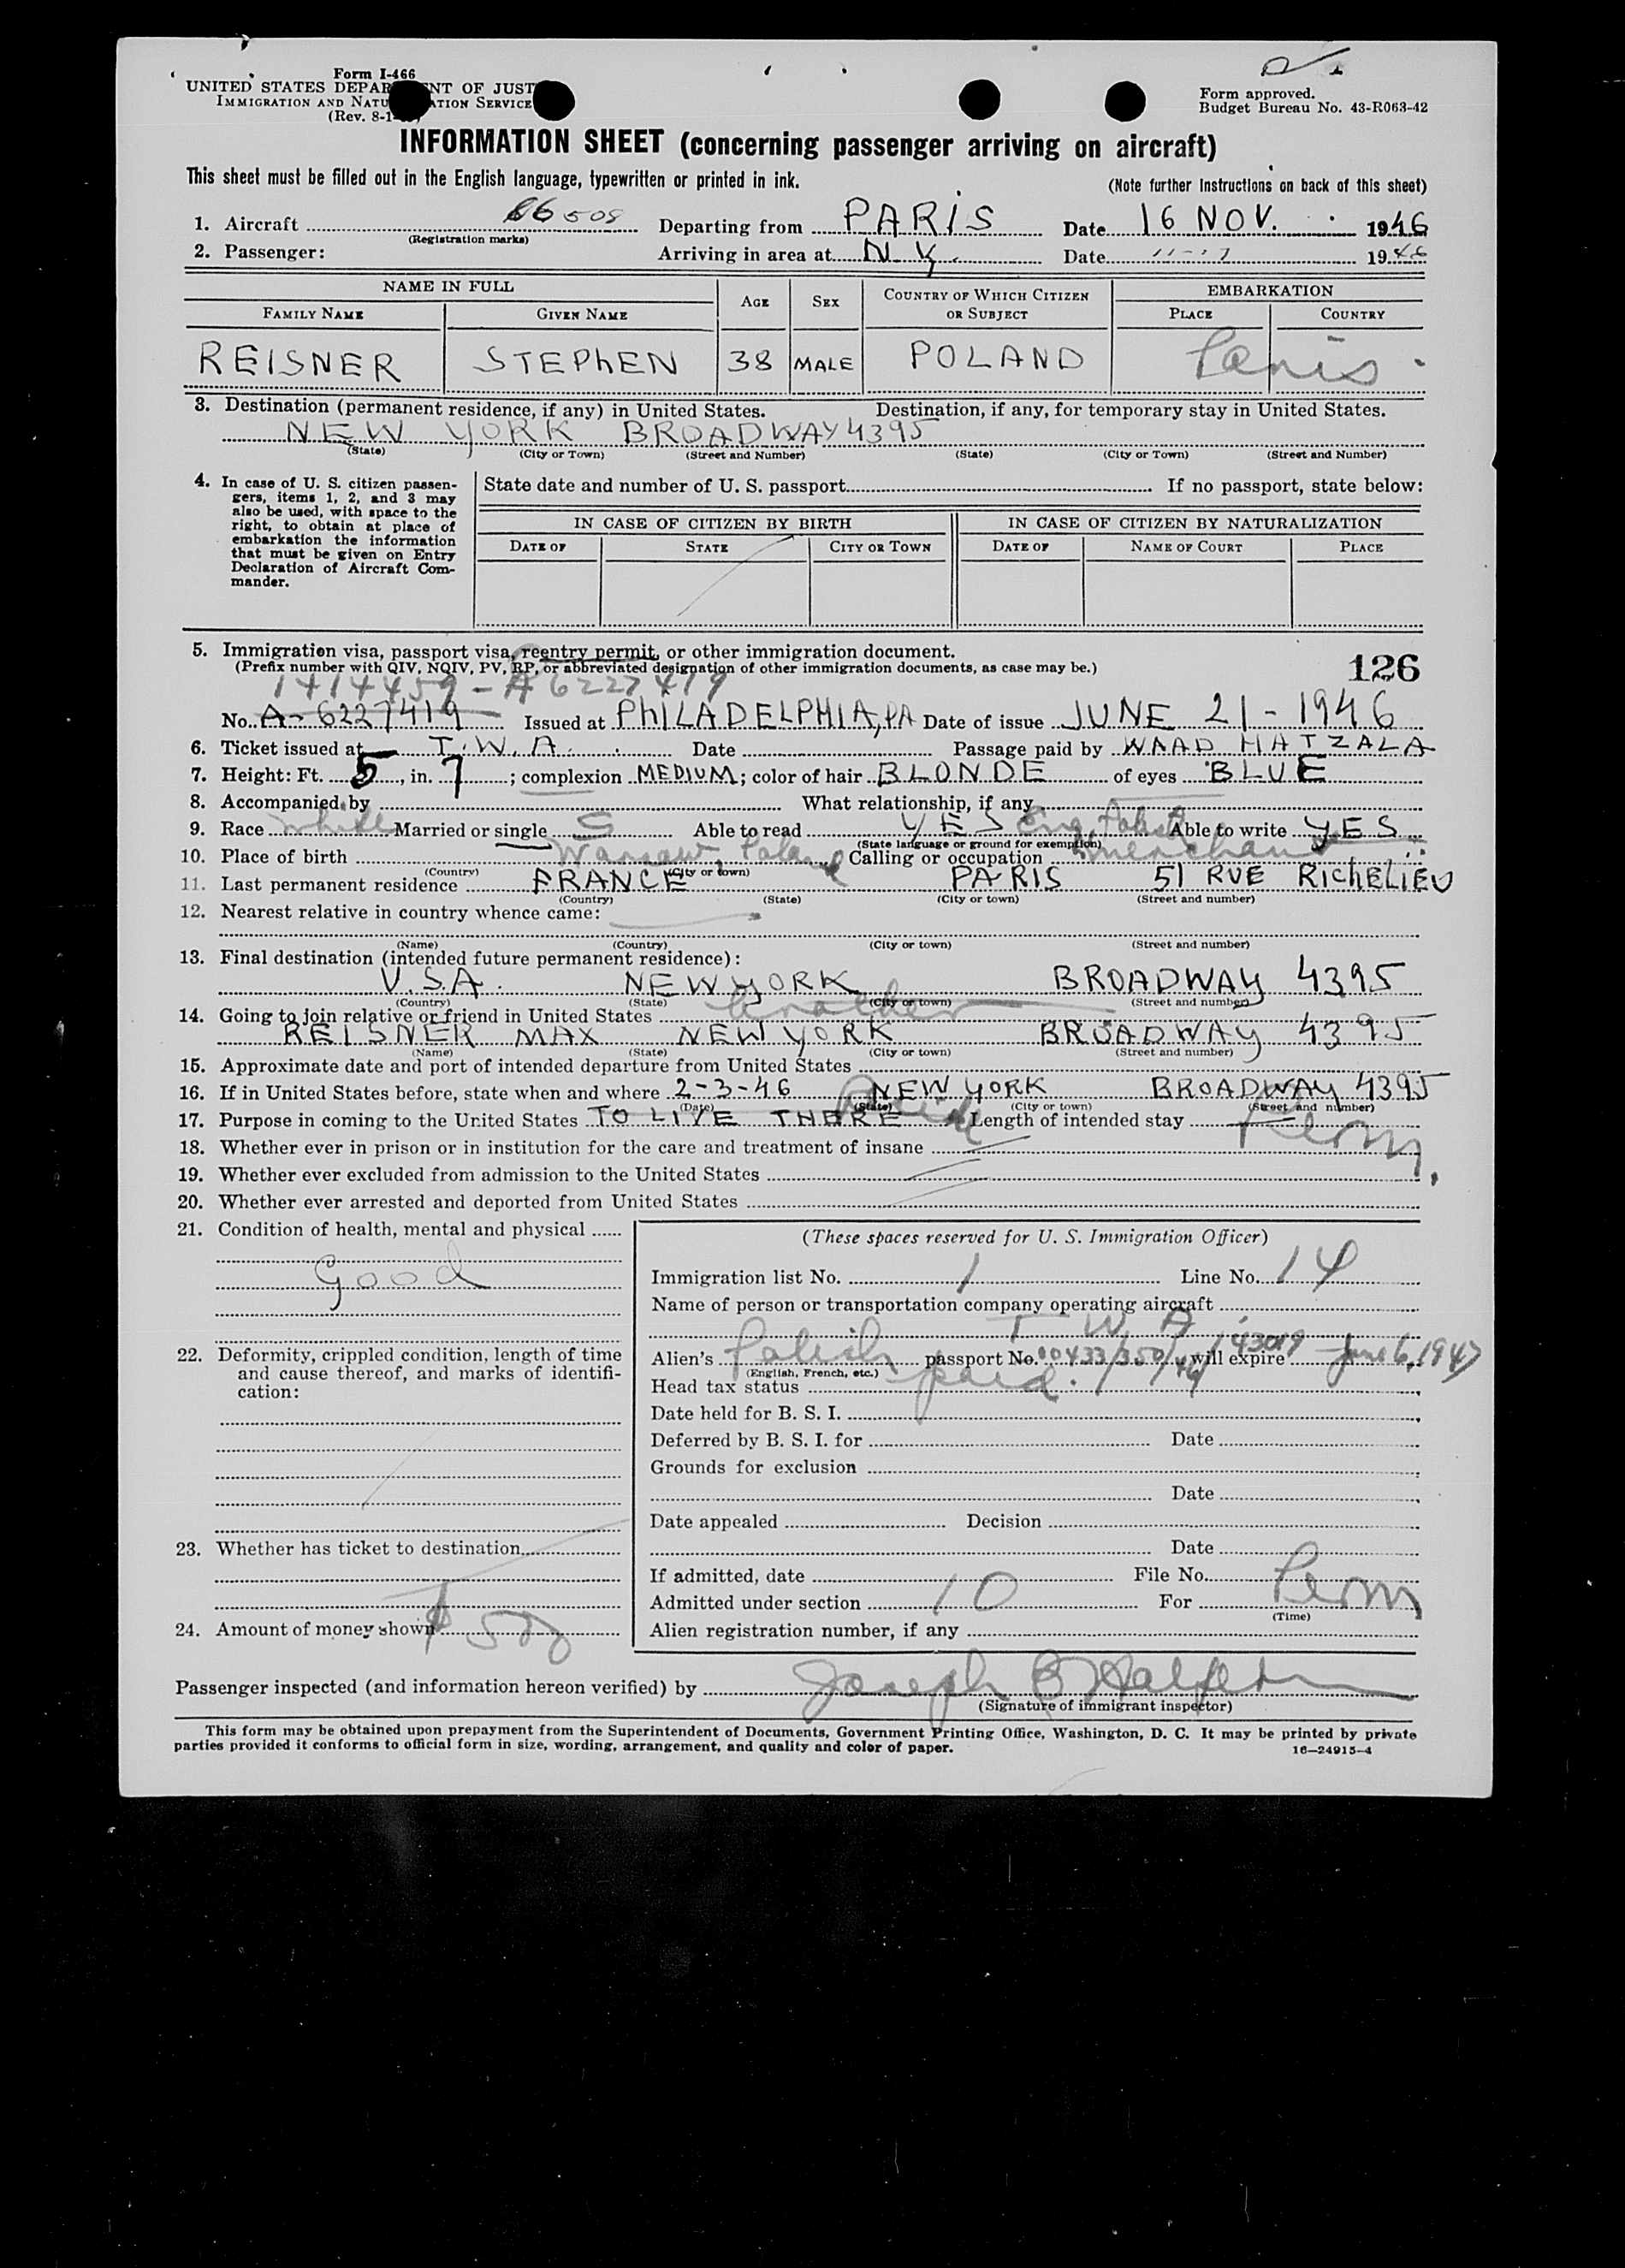 Form I-466
UNITED STATES DEPAR NT OF JUST
IMMIGRATION AND NATU ATION SERVICE
(Rev. 8-1
Form approved.
Budget Bureau No. 43-R063-42
INFORMATION SHEET (concerning passenger arriving on aircraft)
This sheet must be filled out in the English language, typewritten or printed in ink.
(Note further instructions on back of this sheet)
1. Aircraft 86508 Departing from PARIS Date 16 NOV. 1946
(Registration marks)
2. Passenger: Arriving in area at N.Y. Date 11-17 1946
NAME IN FULL AGE SEX COUNTRY OF WHICH CITIZEN OR SUBJECT EMBARKATION
FAMILY NAME GIVEN NAME PLACE COUNTRY
REISNER STEPhEN 38 MALE POLAND Paris
3. Destination (permanent residence, if any) in United States. Destination, if any, for temporary stay in United States.
NEW YORK BROADWAY 4395
(State) (City or Town) (Street and Number) (State) (City or Town) (Street and Number)
4. In case of U. S. citizen passen-
gers, items 1, 2, and 3 may
also be used, with space to the
right, to obtain at place of
embarkation the information
that must be given on Entry
Declaration of Aircraft Com-
mander.
State date and number of U. S. passport If no passport, state below:
IN CASE OF CITIZEN BY BIRTH IN CASE OF CITIZEN BY NATURALIZATION
DATE OF STATE CITY OR TOWN DATE OF NAME OF COURT PLACE
5. Immigration visa, passport visa, reentry permit, or other immigration document.
(Prefix number with QIV, NQIV, PV, RP, or abbreviated designation of other immigration documents, as case may be.)
126
1414459 - A 6227419
No. A-6227419 Issued at PhILADELPHIA, PA Date of issue JUNE 21-1946
6. Ticket issued at T.W.A. Date Passage paid by WAAD HATZALA
7. Height: Ft. 5, in. 7; complexion MEDIUM; color of hair BLONDE of eyes BLUE
8. Accompanied by What relationship, if any
9. Race White Married or single S Able to read YES Eng Polish Able to write YES
(State language or ground for exemption)
10. Place of birth Warsaw, Poland Calling or occupation merchant
(Country) (City or town)
11. Last permanent residence FRANCE PARIS 51 RUE RIChELIEU
(Country) (State) (City or town) (Street and number)
12. Nearest relative in country whence came:
(Name) (Country) (City or town) (Street and number)
13. Final destination (intended future permanent residence):
U.S.A. NEW YORK BROADWAY 4395
(Country) (State) (City or town) (Street and number)
14. Going to join relative or friend in United States brother
REISNER MAX NEW YORK BROADWAY 4395
(Name) (State) (City or town) (Street and number)
15. Approximate date and port of intended departure from United States
16. If in United States before, state when and where 2-3-46 NEW YORK BROADWAY 4395
(Date) (State) (City or town) (Street and number)
17. Purpose in coming to the United States TO LIVE THERE Length of intended stay Perm.
18. Whether ever in prison or in institution for the care and treatment of insane
19. Whether ever excluded from admission to the United States
20. Whether ever arrested and deported from United States
21. Condition of health, mental and physical
Good
22. Deformity, crippled condition, length of time
and cause thereof, and marks of identifi-
cation:
23. Whether has ticket to destination
24. Amount of money shown $500
(These spaces reserved for U. S. Immigration Officer)
Immigration list No. 1 Line No. 14
Name of person or transportation company operating aircraft
T W A
Alien's Polish passport No. 00433/350/46/43019 will expire June 6, 1947
(English, French, etc.)
Head tax status paid.
Date held for B. S. I.
Deferred by B. S. I. for Date
Grounds for exclusion
Date
Date appealed Decision
Date
If admitted, date File No.
Admitted under section 10 For Perm
(Time)
Alien registration number, if any
Passenger inspected (and information hereon verified) by Joseph B Halpern
(Signature of immigrant inspector)
This form may be obtained upon prepayment from the Superintendent of Documents, Government Printing Office, Washington, D. C. It may be printed by private
parties provided it conforms to official form in size, wording, arrangement, and quality and color of paper.
16—24915-4